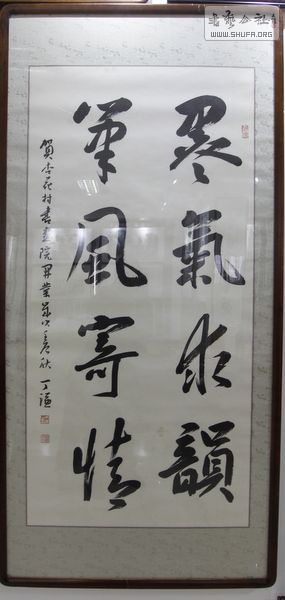 書藝公社
WWW.SHUFA.ORG
墨氣求韻
筆風寄情
賀杏花村書畫院開業 秋 丁謙